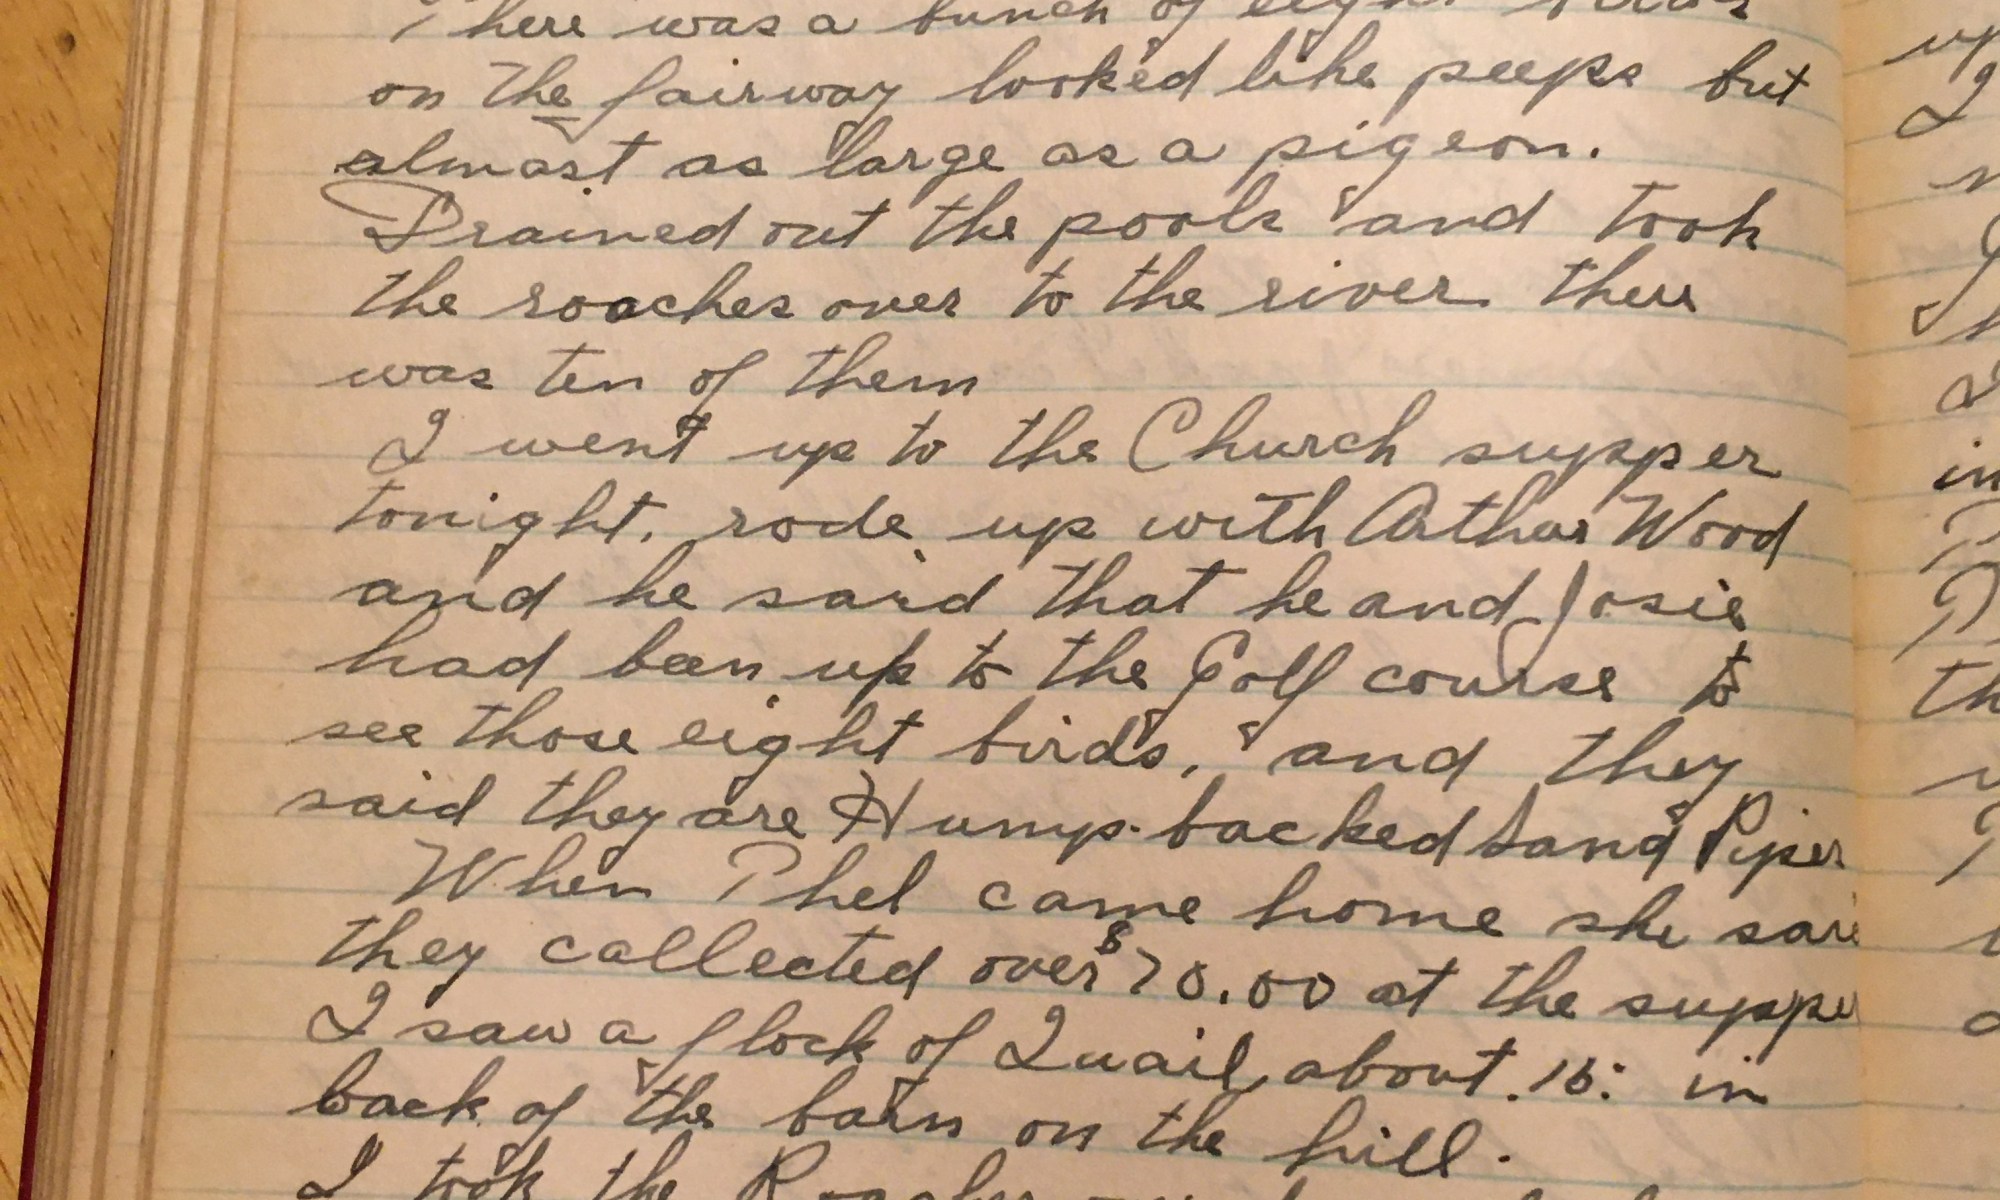 There was a bunch of eight birds
on the fairway looked like peeps but
almost as large as a pigeon.
Drained out the pools and took
the roaches over to the river there
was ten of them
I went up to the Church supper
tonight. rode up with Arthur Wood
and he said that he and Josie
had been up to the Golf course to
see those eight birds, and they
said they are Hump-backed Sand Piper
When Phel came home she sai
they collected over $70.00 at the suppe
I saw a flock of Quail about 15: in
back of the barn on the hill.
I took the